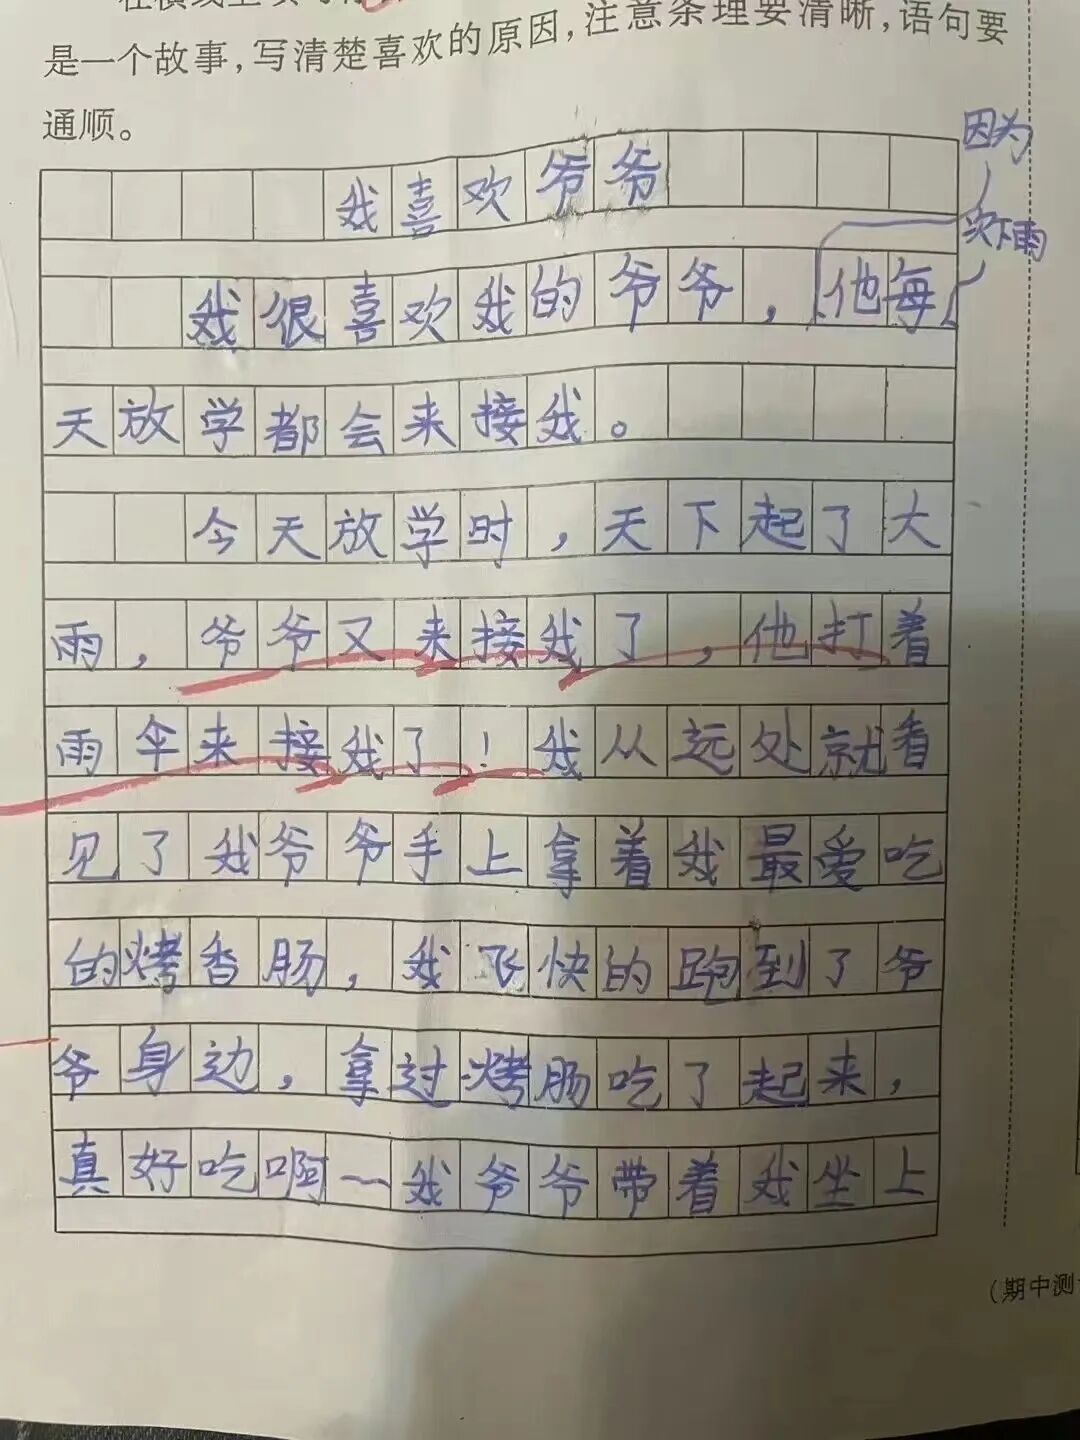 是一个故事,写清楚喜欢的原因,注意条理要清晰,语句要
通顺。
我喜欢爷爷
因为
次下雨
我很喜欢我的爷爷,他每
天放学都会来接我。
今天放学时,天下起了大
雨,爷爷又来接我了,他打着
雨伞来接我了!我从远处就看
见了我爷爷手上拿着我最爱吃
的烤香肠,我飞快的跑到了爷
爷身边,拿过烤肠吃了起来,
真好吃啊一我爷爷带着我坐上
(期中测